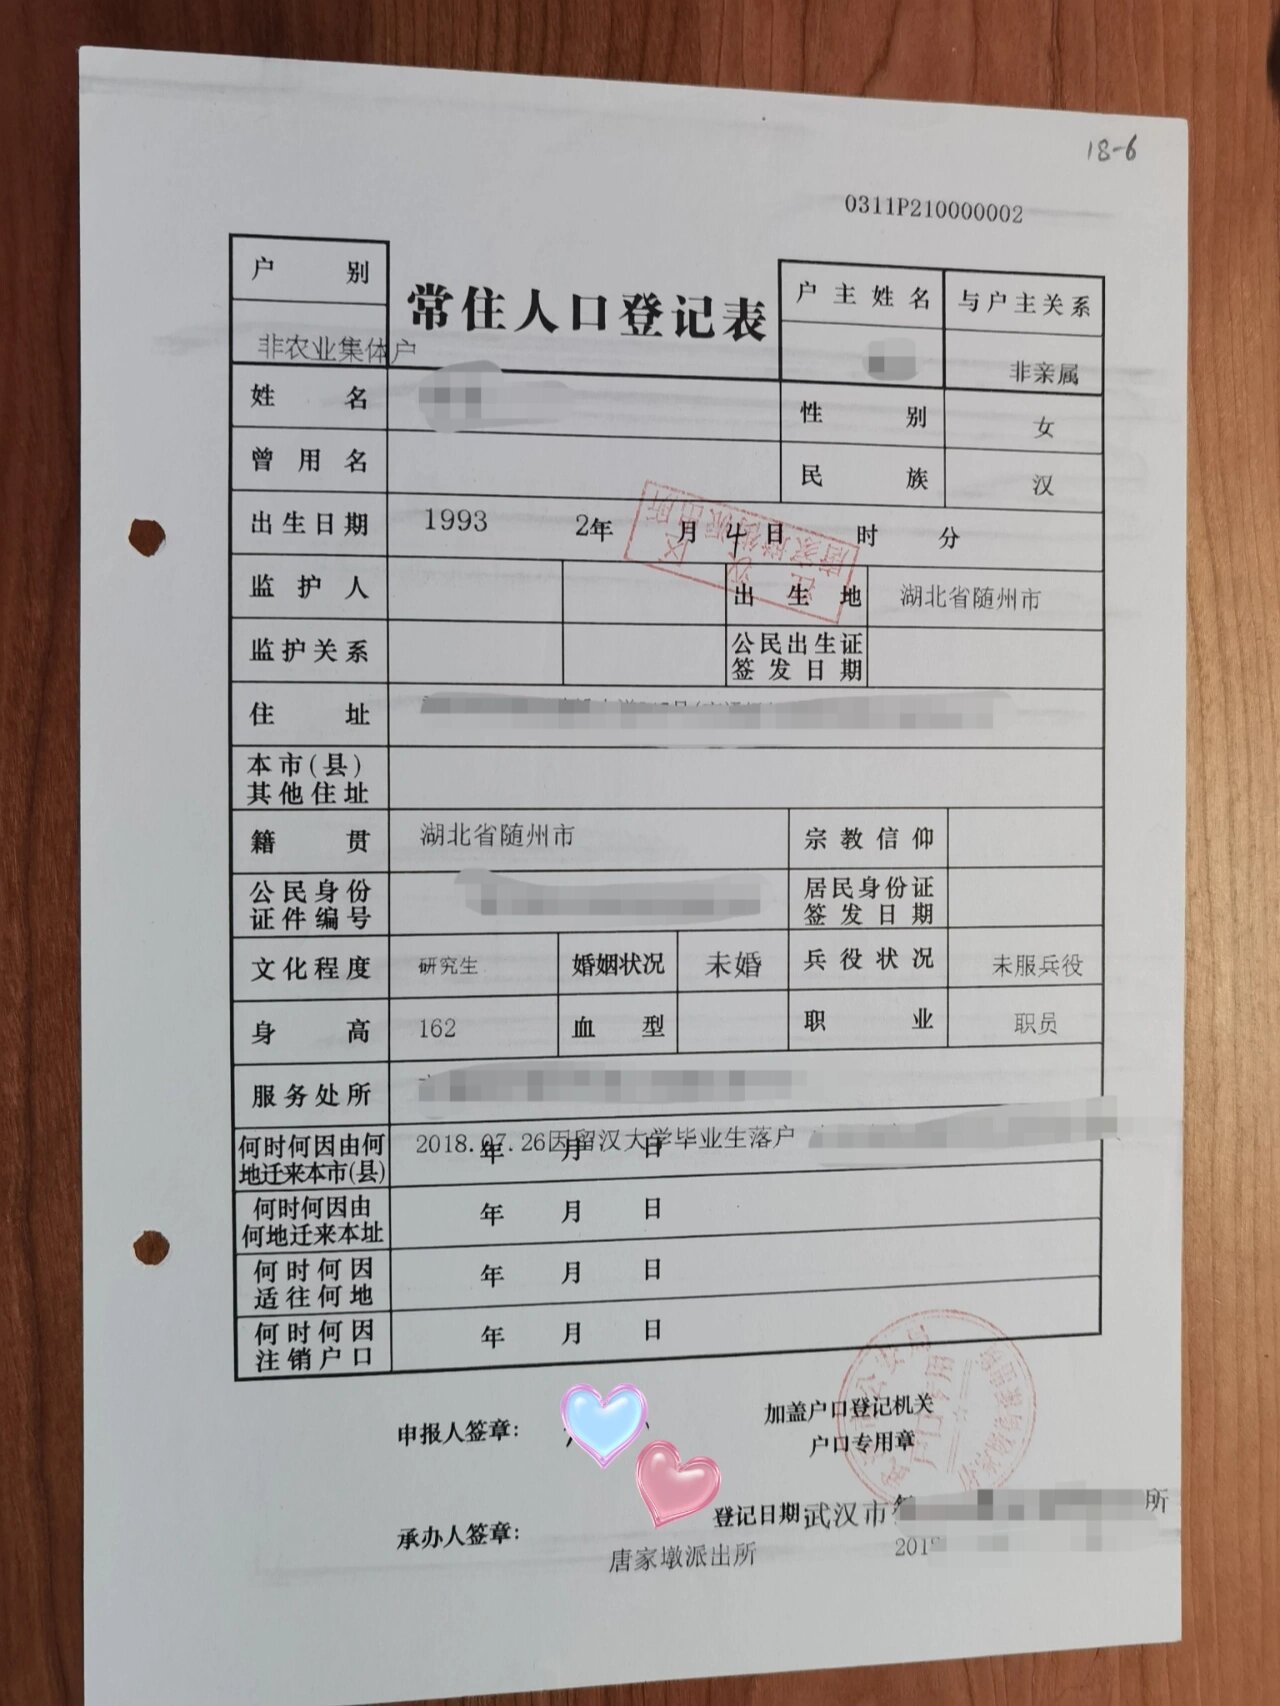 18-6
0311P210000002
户别
常住人口登记表
户主姓名 与户主关系
非农业集体户
非亲属
姓名 性别 女
曾用名 民族 汉
出生日期 1993 2年 月 4 日 时 分
监护人 出生地 湖北省随州市
监护关系 公民出生证签发日期
住址
本市(县)其他住址
籍贯 湖北省随州市 宗教信仰
公民身份证件编号 居民身份证签发日期
文化程度 研究生 婚姻状况 未婚 兵役状况 未服兵役
身高 162 血型 职业 职员
服务处所
何时何因由何地迁来本市(县) 2018.07.26因留汉大学毕业生落户 年 月 日
何时何因由何地迁来本址 年 月 日
何时何因适往何地 年 月 日
何时何因注销户口 年 月 日
申报人签章: 加盖户口登记机关
户口专用章
承办人签章: 登记日期 武汉市 所
唐家墩派出所 201